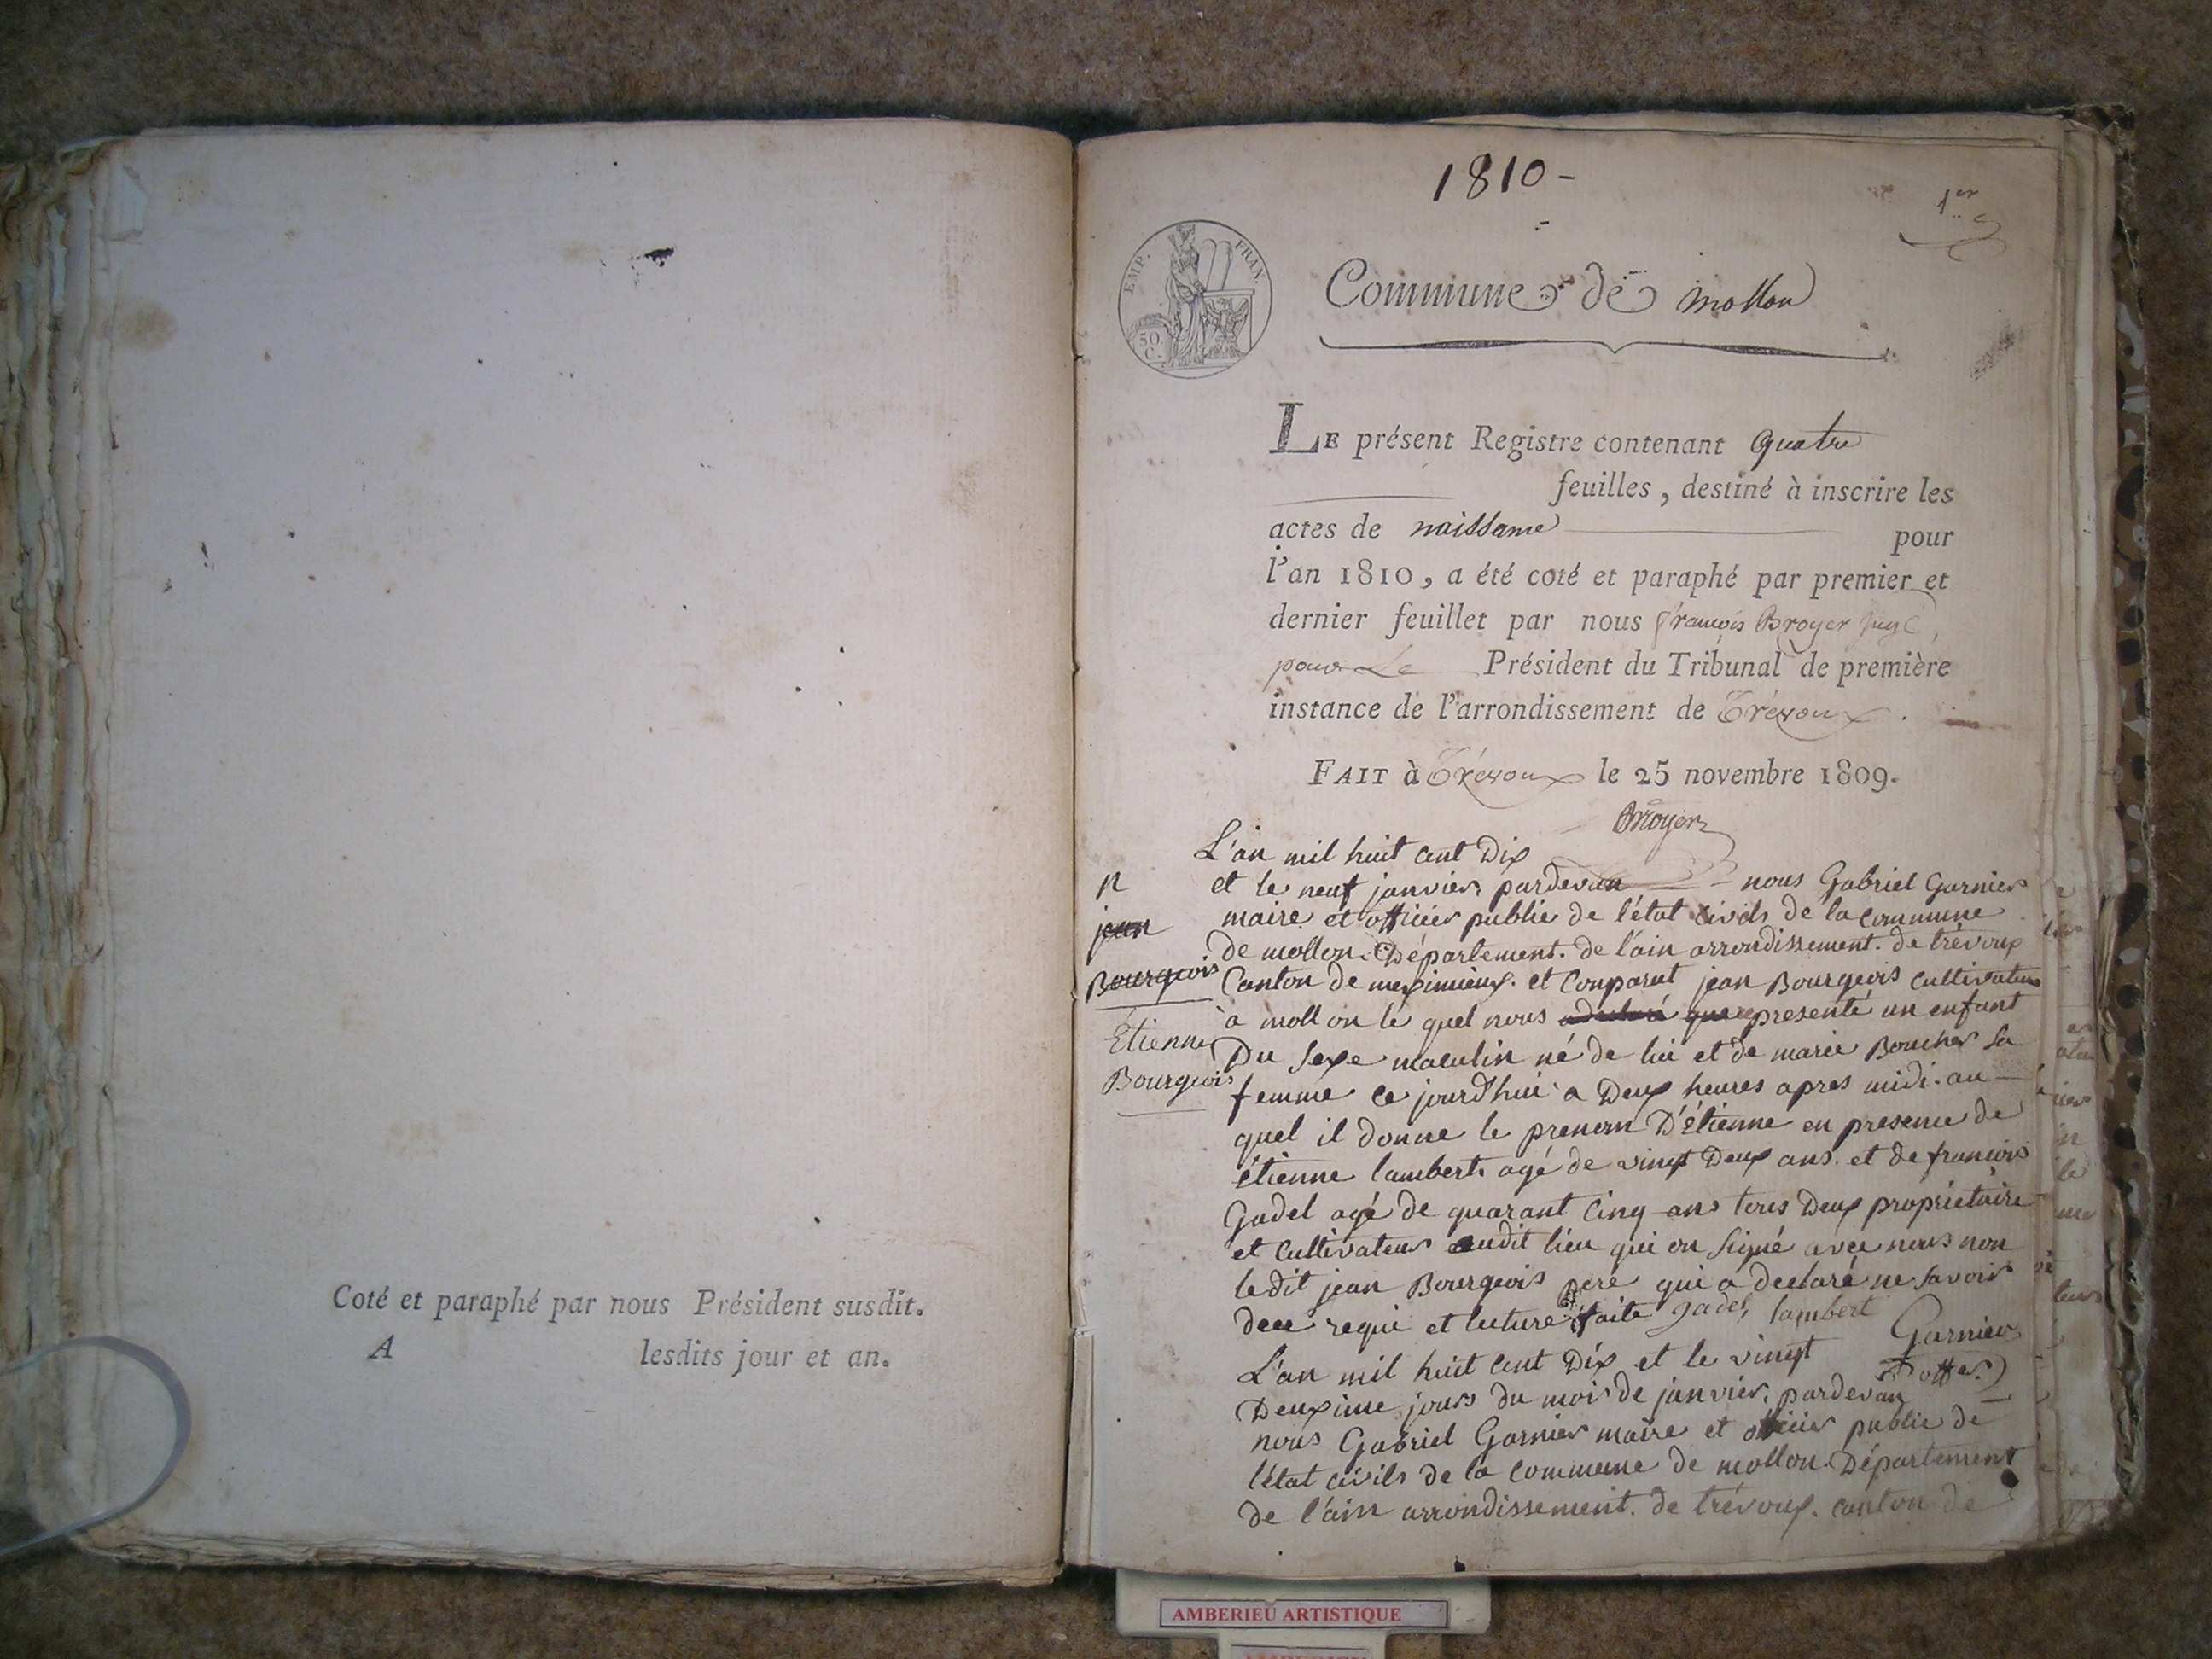 Coté et paraphé par nous Président susdit.
A lesdits jour et an.
1810-
1er
EMP. FRAN.
50.
C.
Commune de mollon
LE présent Registre contenant quatre
feuilles, destiné à inscrire les
actes de naissance pour
l'an 1810, a été coté et paraphé par premier et
dernier feuillet par nous françois Broyer juge,
pour Le Président du Tribunal de première
instance de l'arrondissement de Trévoux.
FAIT à Trévoux le 25 novembre 1809.
Broyer
L'an mil huit cent Dix
et le neuf janvier pardevan nous Gabriel Garnier
maire et officier public de l'état civils de la commune
de mollon. Département. de l'ain arrondissement. de trévoux
Canton de meximieux. et Comparut jean Bourgeois cultivateur
à mollon le quel nous a declaré que presenté un enfant
Du sexe maculin né de lui et de marie Boucher sa
femme ce jourd'hui a Deux heures apres midi. au
quel il donne le prenom D'Étienne en presence de
étienne lambert. agé de vingt Deux ans. et de francois
Gadel agé de quarant Cinq ans tous Deux propriétaire
et Cultivateur audit lieu qui on signé avec nous non
le dit jean Bourgeois peré qui a declaré ne savoir
dee requi et lecture faite gadel lambert
Garnier
L'an mil huit cent Dix et le vingt
Deuxime jours du mois de janvier. pardevan
nous Gabriel Garnier maire et officier public de
l'état civils de la commune de mollon. Département
de l'ain arrondissement. de trévoux. canton de
n
jean
Bourgeois
Étienne
Bourgeois
AMBERIEU ARTISTIQUE